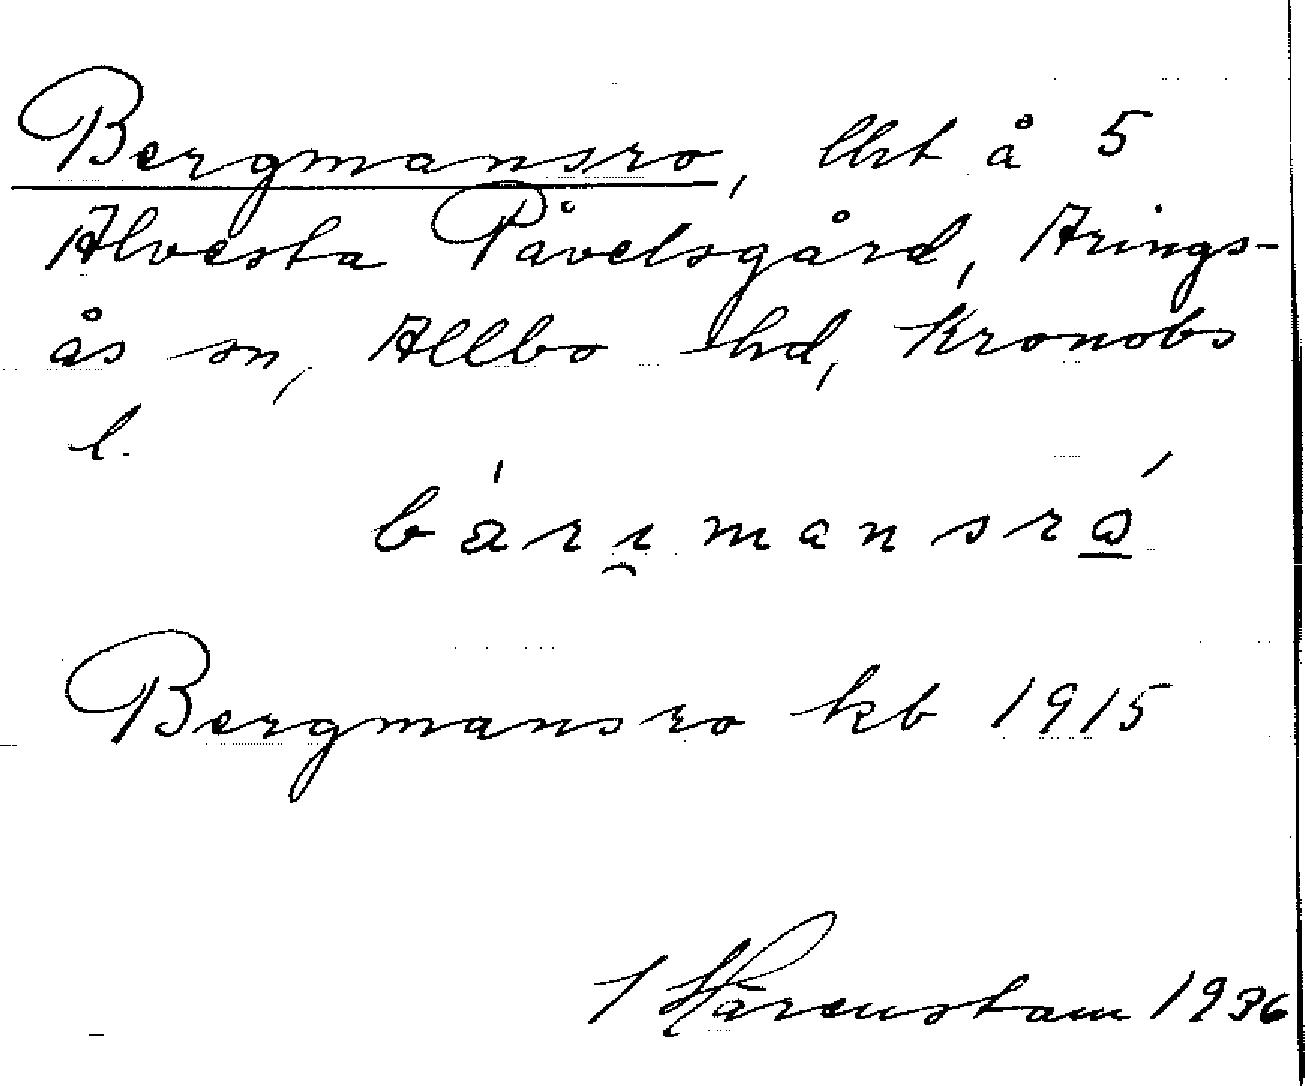 Bergmansro, lht å 5
Alvesta Påvelsgård, Arings-
ås sn, Allbo hd, Kronobs
l.
bä́rı̯mansró̱
Bergmansro kb 1915
1936